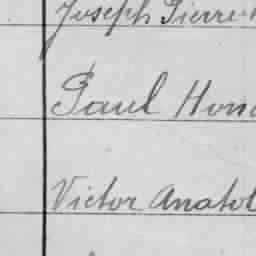 Joseph Pierre
Paul Hono
Victor Anatol